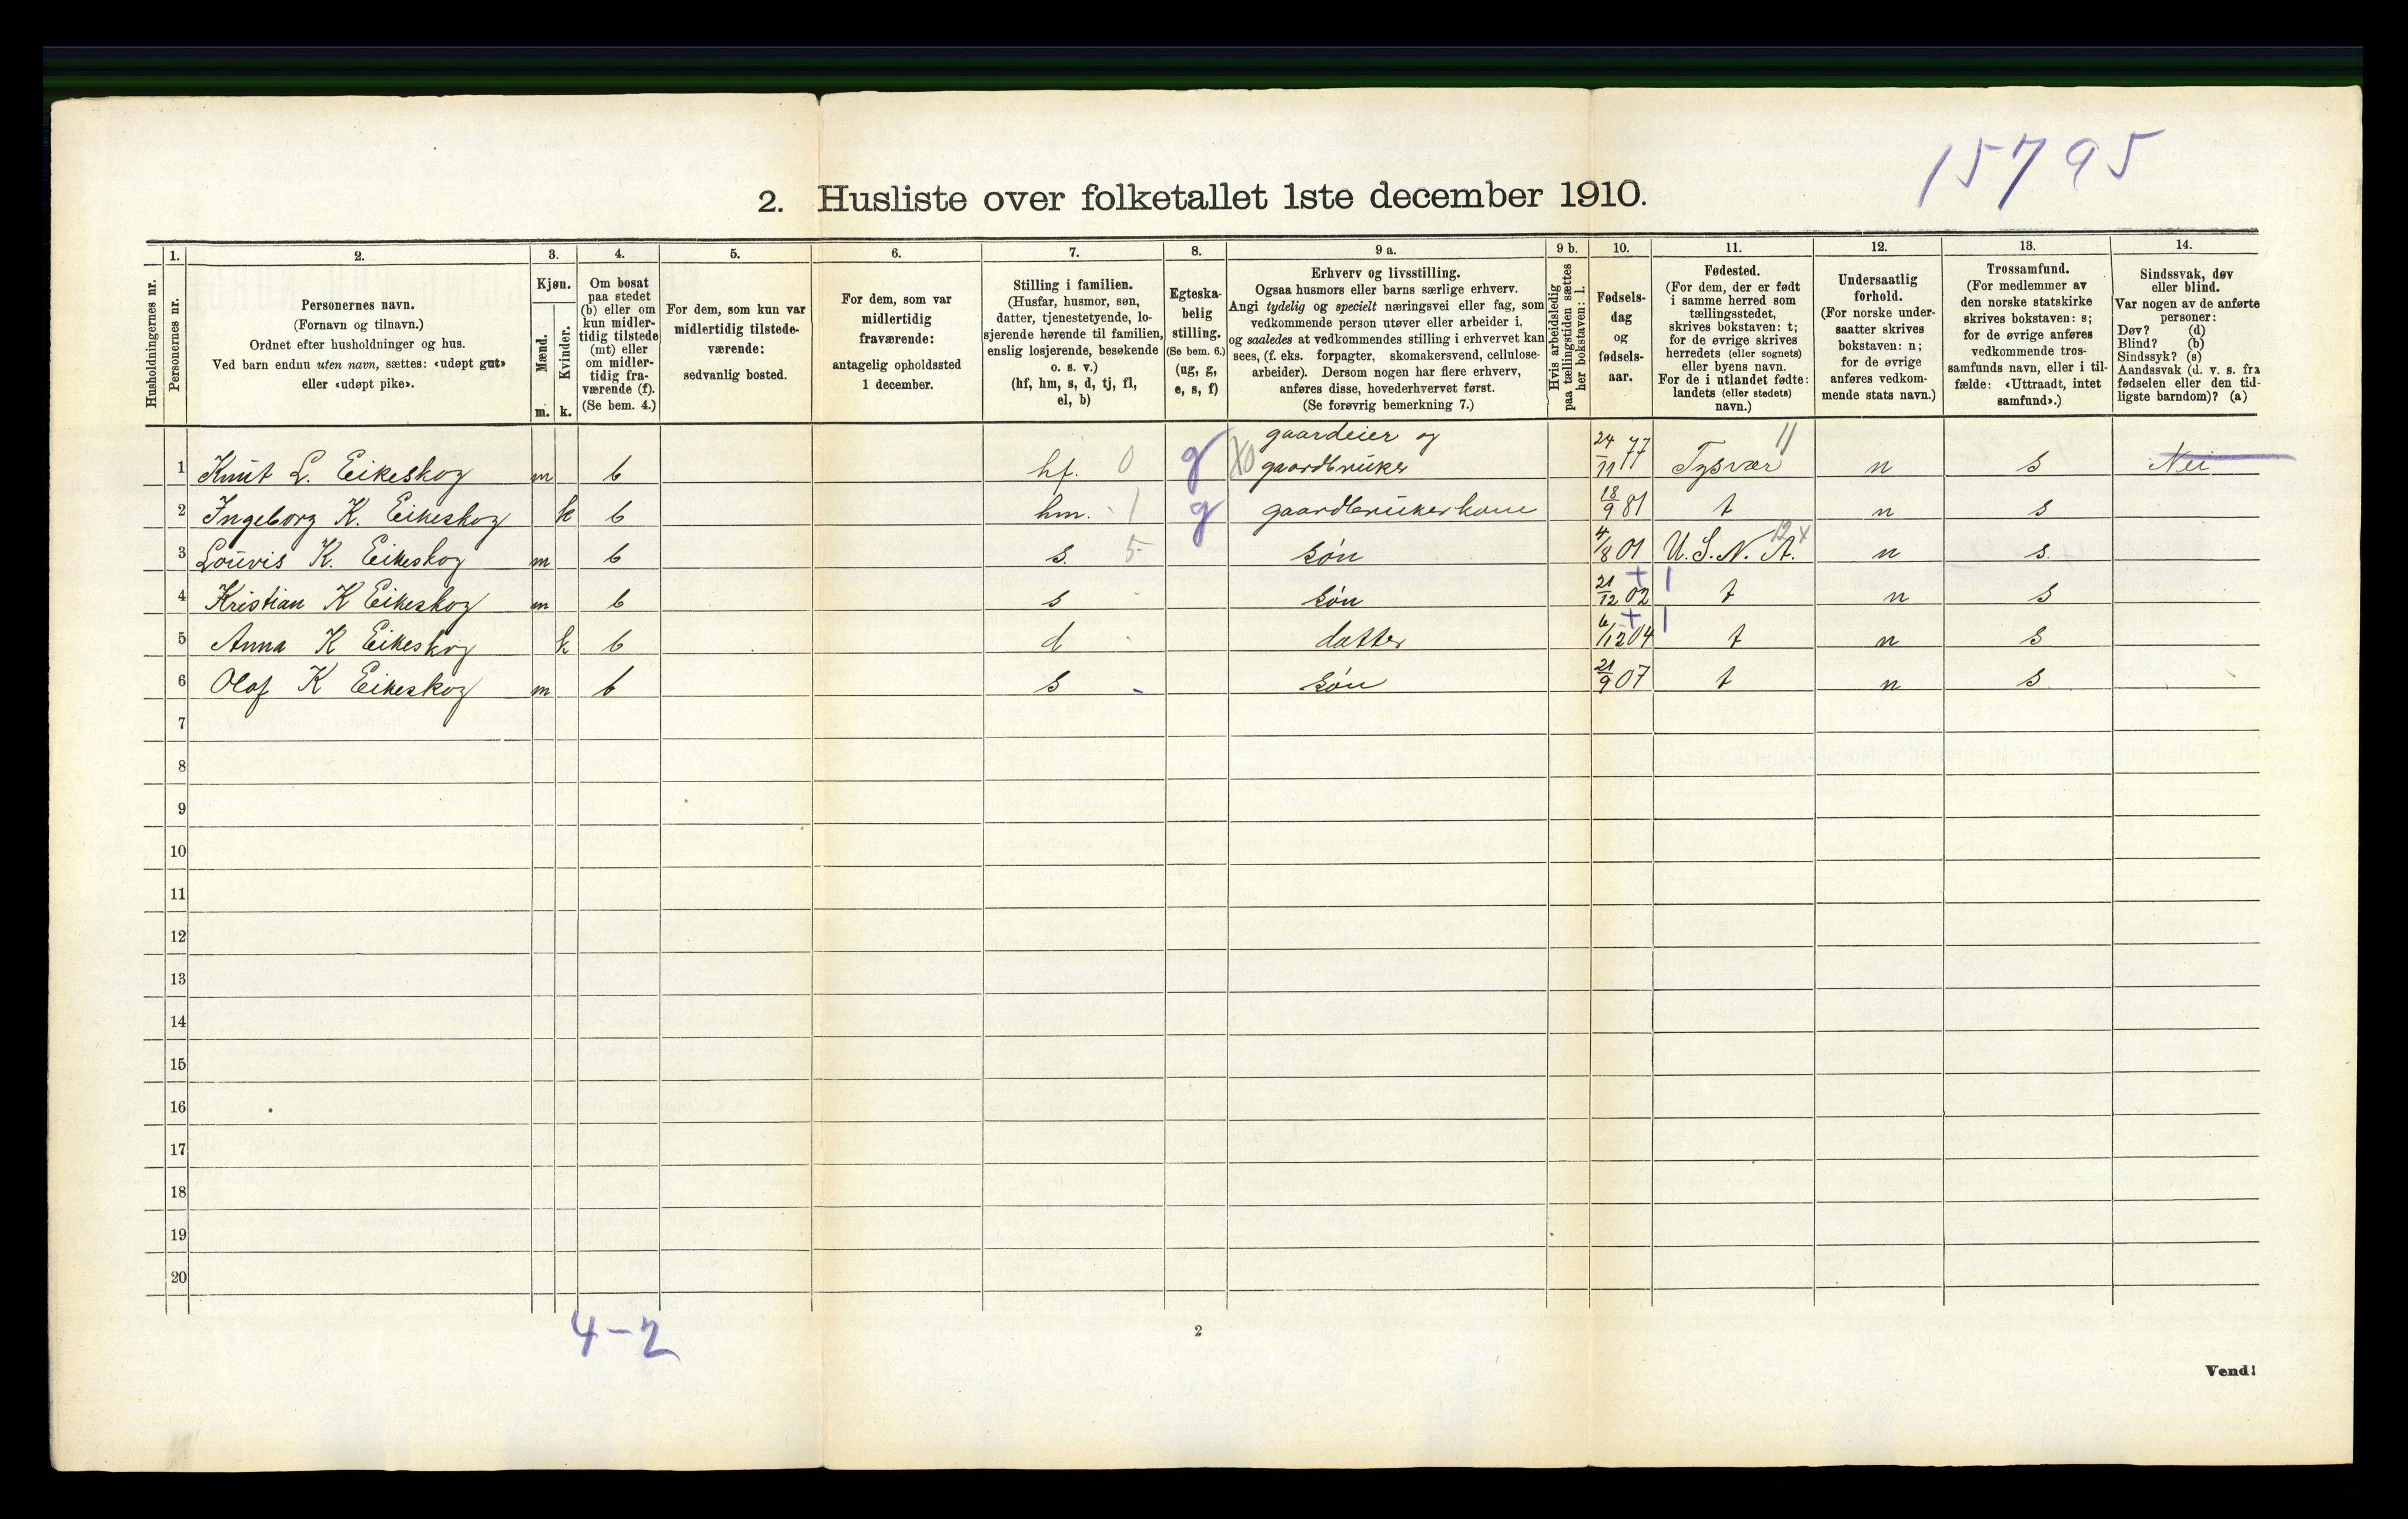 15795
2. Husliste over folketallet 1ste december 1910.
Husholdningernes nr.
1.
Personernes nr.
2.
Personernes navn.
(Fornavn og tilnavn.)
Ordnet efter husholdninger og hus.
Ved barn endnu uten navn, sættes: «udøpt gut»
eller «udøpt pike».
3.
Kjøn.
Mænd.
Kvinder.
m. k.
4.
Om bosat
paa stedet
(b) eller om
kun midler-
tidig tilstede
(mt) eller
om midler-
tidig fra-
værende (f).
(Se bem. 4.)
5.
For dem, som kun var
midlertidig tilstede-
værende:
sedvanlig bosted.
6.
For dem, som var
midlertidig
fraværende:
antagelig opholdssted
1 december.
7.
Stilling i familien.
(Husfar, husmor, søn,
datter, tjenestetyende, lo-
sjerende hørende til familien,
enslig losjerende, besøkende
o. s. v.)
(hf, hm, s, d, tj, fl,
el, b)
8.
Egteska-
belig
stilling.
(Se bem. 6.)
(ug, g,
e, s, f)
9 a.
Erhverv og livsstilling.
Ogsaa husmors eller barns særlige erhverv.
Angi tydelig og specielt næringsvei eller fag, som
vedkommende person utøver eller arbeider i,
og saaledes at vedkommendes stilling i erhvervet kan
sees, (f. eks. forpagter, skomakersvend, cellulose-
arbeider). Dersom nogen har flere erhverv,
anføres disse, hovederhvervet først.
(Se forøvrig bemerkning 7.)
9 b.
Hvis arbeidsledig
paa tællingstiden sættes
her bokstaven: l.
10.
Fødsels-
dag
og
fødsels-
aar.
11.
Fødested.
(For dem, der er født
i samme herred som
tællingsstedet,
skrives bokstaven: t;
for de øvrige skrives
herredets (eller sognets)
eller byens navn.
For de i utlandet fødte:
landets (eller stedets)
navn.)
12.
Undersaatlig
forhold.
(For norske under-
saatter skrives
bokstaven: n;
for de øvrige
anføres vedkom-
mende stats navn.)
13.
Trossamfund.
(For medlemmer av
den norske statskirke
skrives bokstaven: s;
for de øvrige anføres
vedkommende tros-
samfunds navn, eller i til-
fælde: «Uttraadt, intet
samfund».)
14.
Sindssvak, døv
eller blind.
Var nogen av de anførte
personer:
Døv? (d)
Blind? (b)
Sindssyk? (s)
Aandssvak (d. v. s. fra
fødselen eller den tid-
ligste barndom)? (a)
gaardeier og
1 Knut L. Eikeskog m b hf. 0 g X0 gaardbruker 24/11 77 Tysvær 11 n s Nei
2 Ingeborg K. Eikeskog k b hm. 1 g gaardbrukerkone 18/9 81 t n s
3 Louvis K. Eikeskog m b s. 5 søn 4/8 01 U.S.N.A. 12 x n s.
4 Kristian K Eikeskog m b s søn 21/12 02 + 1 t n s
5 Anna K Eikeskog k b d datter 6/12 04 + 1 t n s
6 Olaf K Eikeskog m b s - søn 21/9 07 t n s
7
8
9
10
11
12
13
14
15
16
17
18
19
20
4-2
2
Vend!